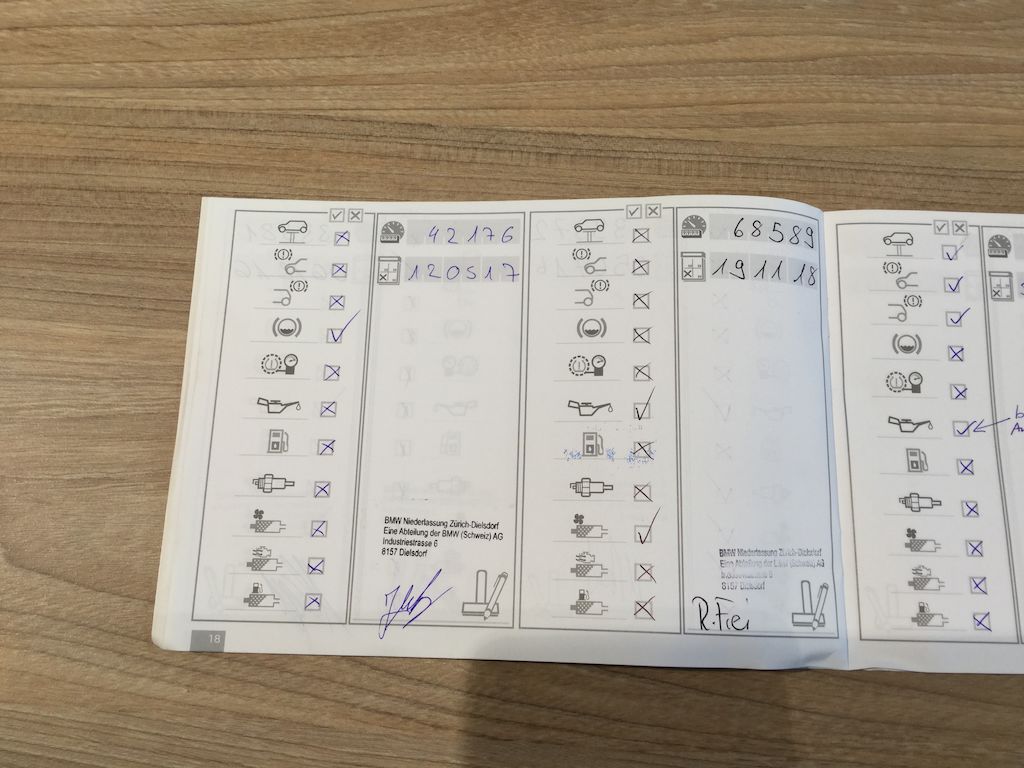 42176
120517
BMW Niederlassung Zürich-Dielsdorf
Eine Abteilung der BMW (Schweiz) AG
Industriestrasse 6
8157 Dielsdorf
18
68589
191118
BMW Niederlassung Zürich-Dielsdorf
Eine Abteilung der BMW (Schweiz) AG
Industriestrasse 6
8157 Dielsdorf
R. Frei